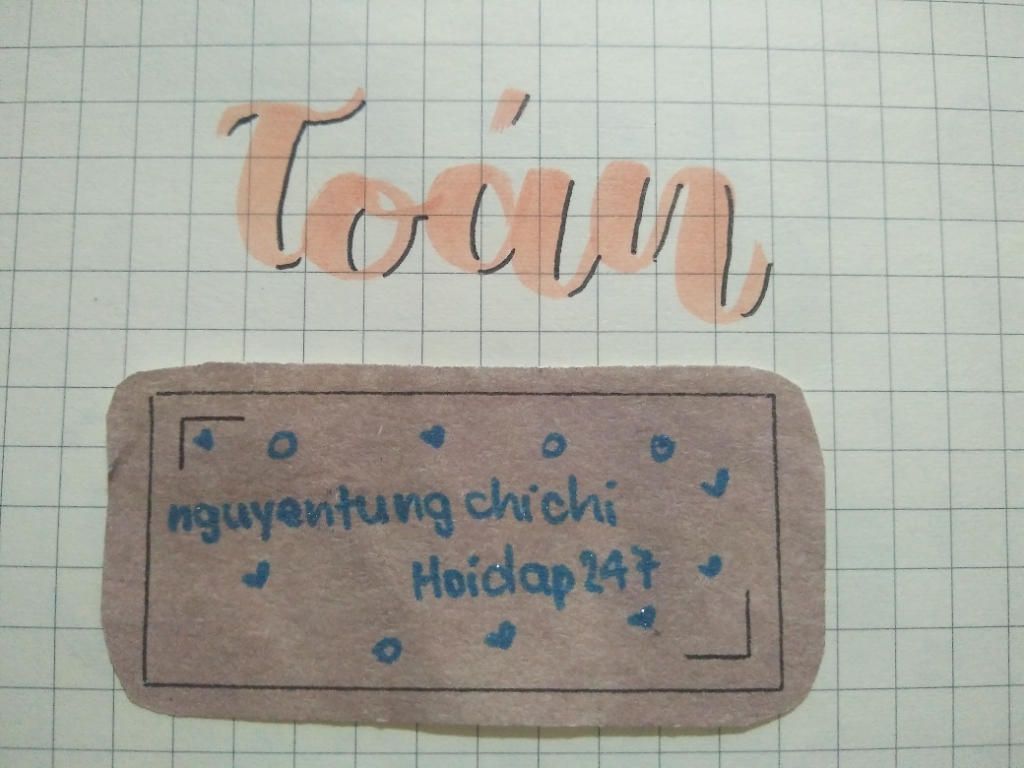 Toán
nguyentung chichi
Hoidap247